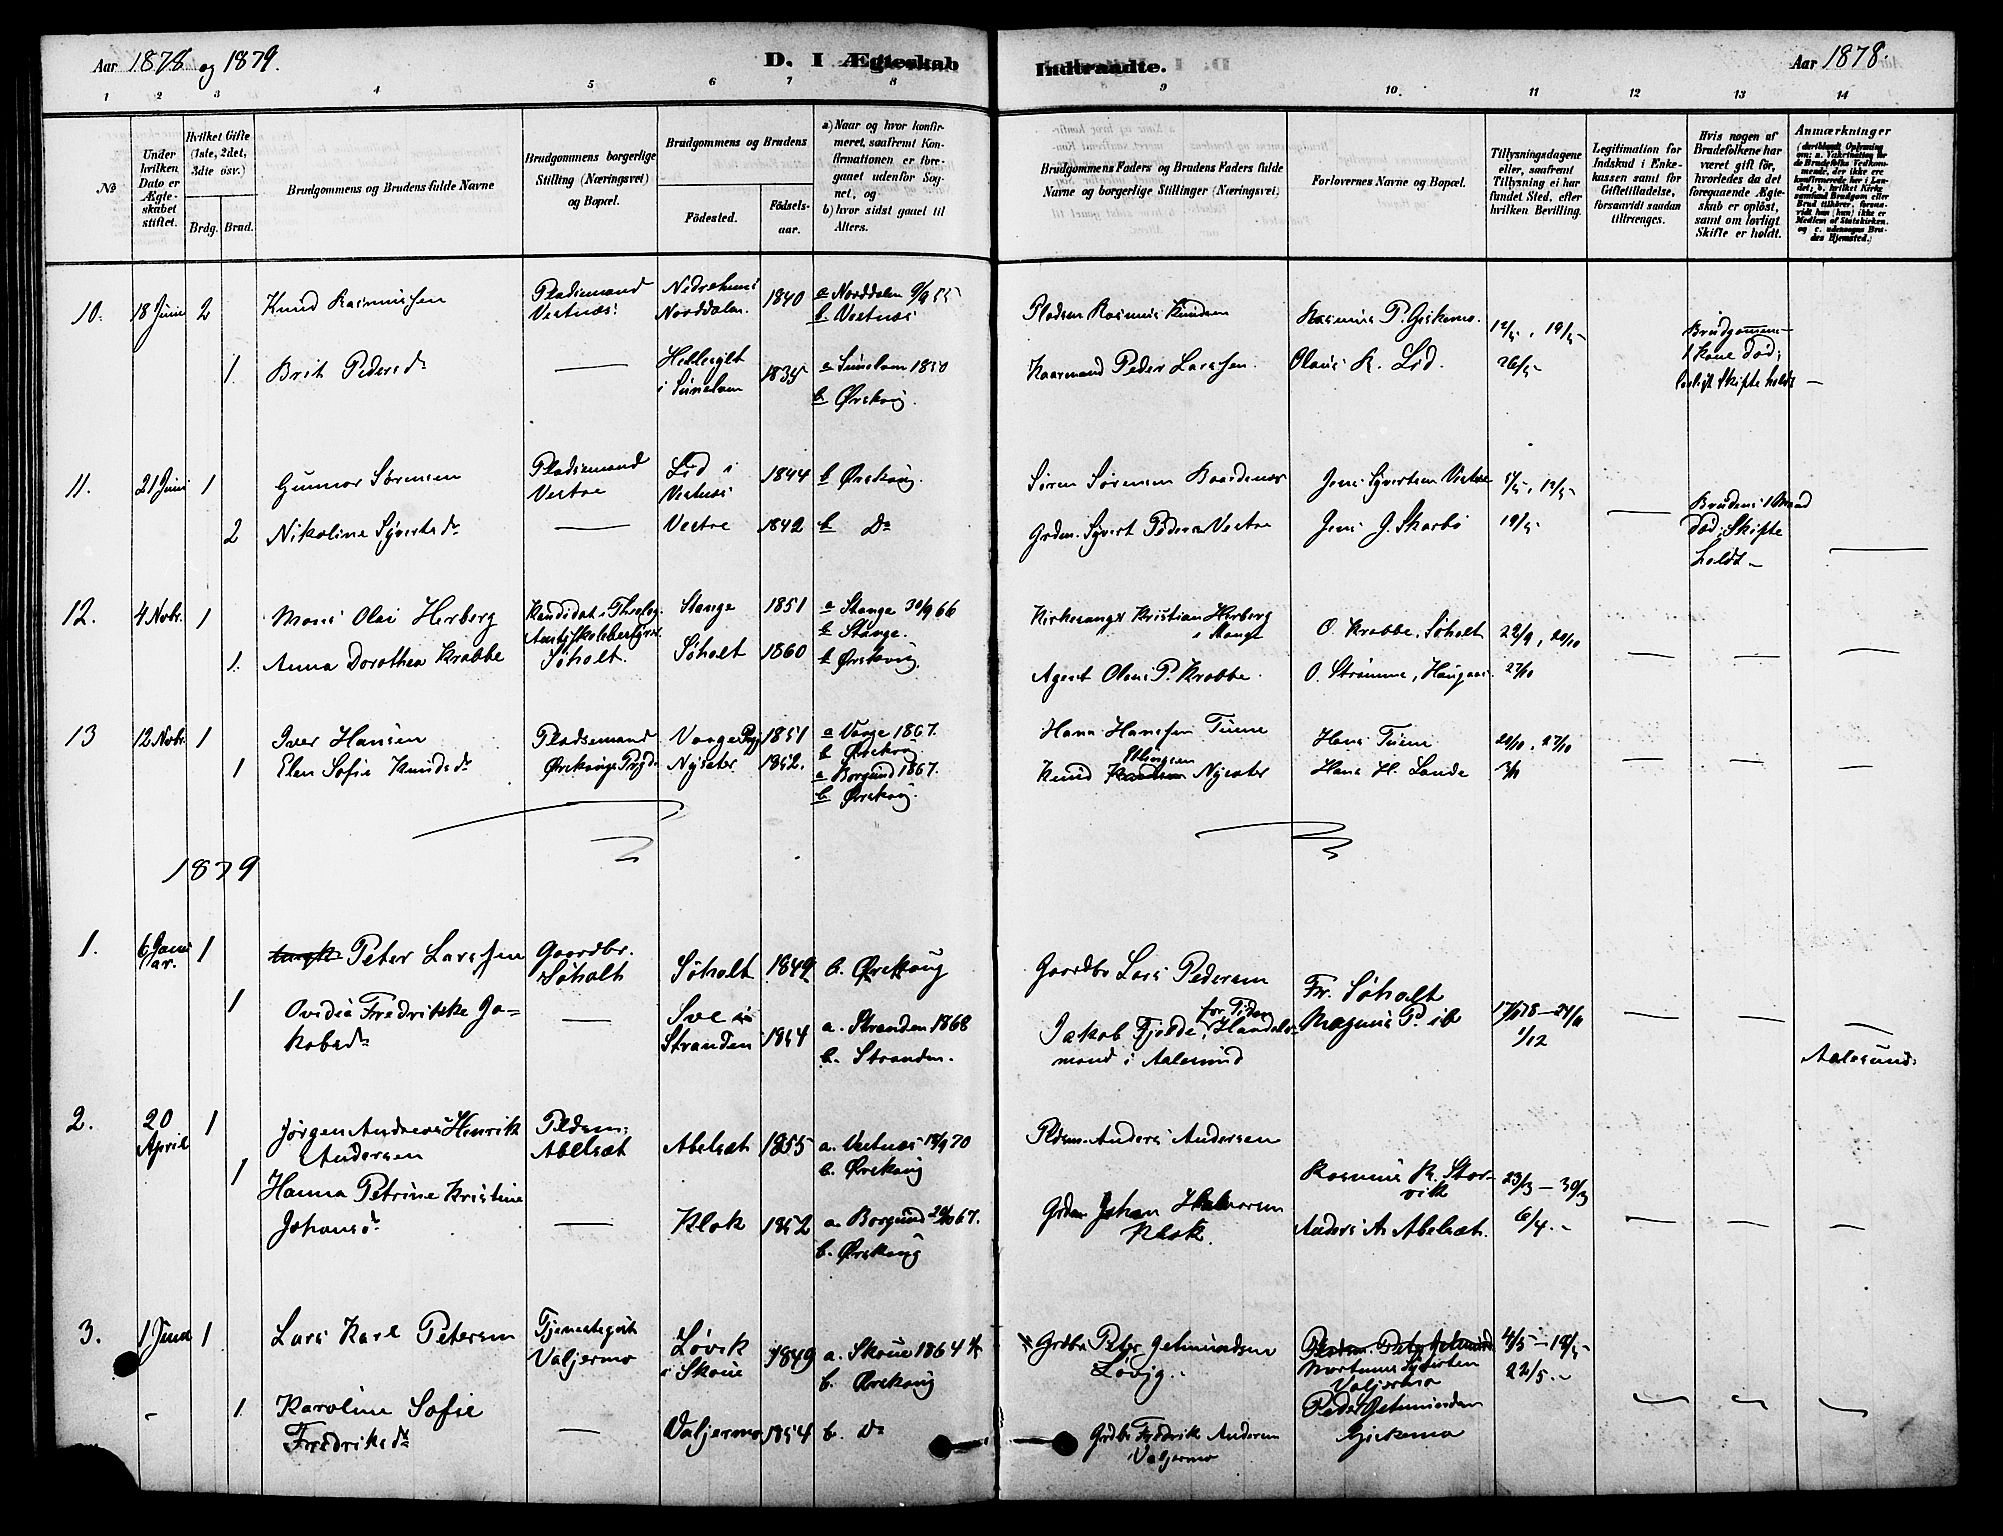 Aar 1878 og 1879.
D. I Ægteskab
Indtraadte.
Aar 1878.
1 2 3 4 5 6 7 8 9 10 11 12 13 14
№
Under hvilken Dato er Ægteskabet stiftet.
Hvilket Gifte (1ste, 2det, 3die osv.)
Brdg. Brud.
Brudgommens og Brudens fulde Navne
Brudgommens borgerlige Stilling (Næringsvei) og Bopæl.
Brudgommens og Brudens
Födested.
Födsels-aar.
a) Naar og hvor konfirmeret, saafremt Konfirmationen er foregaaet udenfor Sognet, og
b) hvor sidst gaaet til Alters.
Brudgommens Faders og Brudens Faders fulde Navne og borgerlige Stillinger (Næringsvei)
Forlovernes Navne og Bopæl.
Tillysningsdagene eller, saafremt Tillysning ei har fundet Sted, efter hvilken Bevilling.
Legitimation for Indskud i Enkekassen samt for Giftetilladelse, forsaavidt saadan tiltrænges.
Hvis nogen af Brudefolkene har været gift før, hvorledes da det foregaaende Ægteskab er opløst, samt om lovligt Skifte er holdt.
Anmærkninger
10. 18 Juni 2 Knud Rasmussen Pladsemand Vestnæs Norddalen 1840 a Norddalen b Vestnæs Pladsm Rasmus Knudsen Rasmus P. Giskemo 12/5, 19/5
1 Brit Pedersd Hellesylt i Sunelven 1835 a Sunelven 1850 b Ørskoug. Peder Larssen Olaus K. Lid. 26/5 Brudgommens 1 kone død; lovligt Skifte holdt
11. 21 Juni 1 Gunnar Sørensen Pladsemand Vestre Lid i Vestnæs 1844 b Ørskoug. Søren Sørensen Jens Syvertsen Vestre 12/5
2 Nikoline Syvertsd Vestre 1842 b Do Grdm. Syvert Pedersen Vestre Jens J. Skarbø 19/5 Brudens 1 Mand død; Skifte holdt
12. 4 Novbr. 1 Mons Olai Herberg Kandidat i Theolog. Amtsskolebestyrer Søholt. Stange 1851 a Stange 30/9 66 b Stange. Kirkesanger Kristian Herberg i Stange O. Krabbe, Søholt 22/9, 20/10
1. Anna Dorothea Krabbe Søholt 1860 b Ørskoug. Agent Olaus P. Krabbe. O. Strømme, Haugaas. 27/10
13 12 Novbr. 1 Iver Hansen Pladsemand Ørskougs Prgd. Vaage 1851 a Vaage 1867. b Ørskoug Hans Hanssen Tuene Hans Tuene 20/10, 27/10
1 Elen Sofie Knudsd Nysæter 1852. a Borgund 1867. b Ørskoug. Knud Nysæter Hans H. Lande 3/11
1879
1. 6 Januar. 1 Peter Larssen Gaardbr. Søholt Søholt 1849 b. Ørskoug Gaardbr Lars Pedersen Fr. Søholt
1 Ovidia Fredrikke Jakobsd Sve i Stranden 1854 a. Stranden 1868 b. Stranden. Jakob Fjedde, for Tiden Handelsmand i Aalesund Magnus P. ib 17/11 78 — 24/11 1/12 Aalesund.
2. 20 April 1 Jørgen Andreas Henrik Andersen Pldsm. Abelsæt Abelsæt 1855 a. Vestnæs 18/9 70 b. Ørskoug Pldsm. Anders Andersen Rasmus K. Storvik 23/3 — 30/3
1 Hanna Petrine Kristine Johansd Klok 1852 a. Borgund 67. b. Ørskoug Grdm Johan Klok. Anders A. Abelsæt. 6/4.
3. 1 Juni 1 Lars Karl Petersen Valjermo Løvik i Skoue 1849 a. Skoue 1864 b. Ørskoug Grdbr Peter Jetmundsen Løvig. Syvertsen Valjermo 4/5 — 18/5 22/5.
1. Karoline Sofie Fredriksd Valjermo 1854 b. Do Grdbr Fredrik Andersen Valjermo Peder Jetmundsen Giskemo